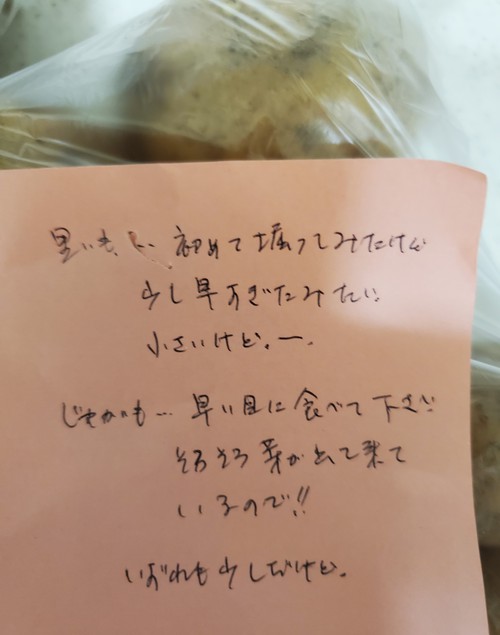 里いも、… 初めて掘ってみたけど
少し早すぎたみたい
小さいけど。ー.
じゃがいも… 早い目に食べて下さい
そろそろ芽が出て来て
いるので!!
いずれも少しだけど。